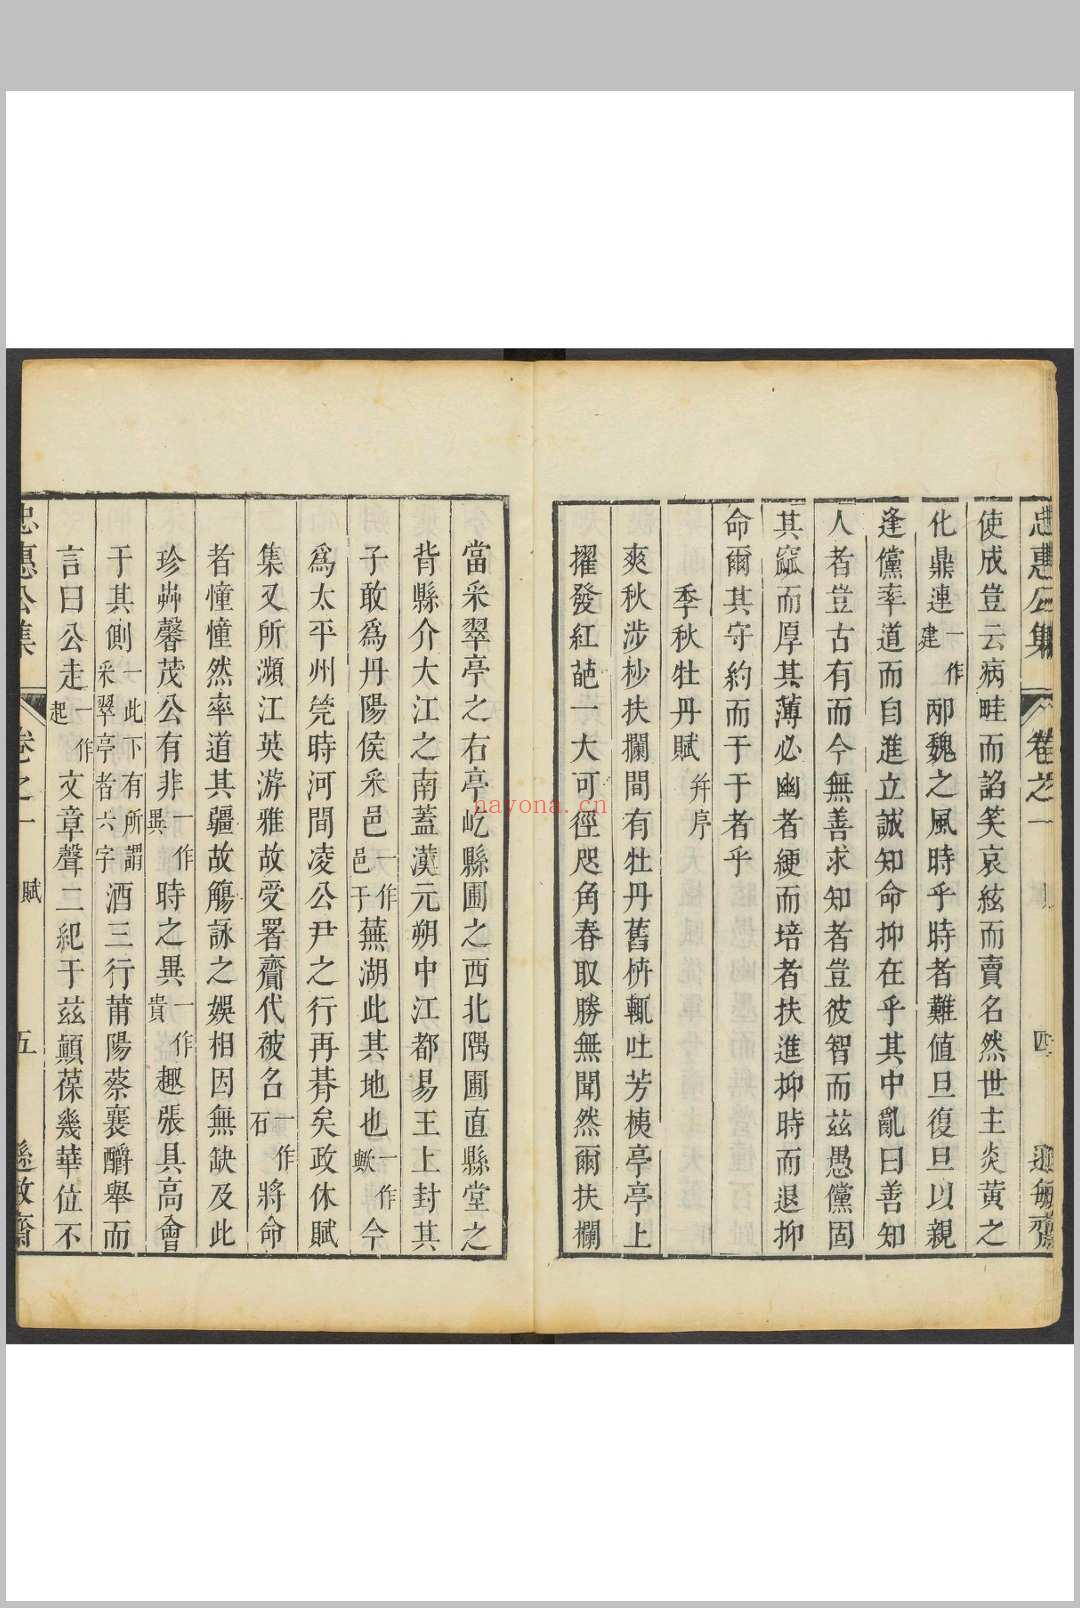 忠惠公集 卷之一 四 遜敏齋
使成豈云病畦而諂笑哀絃而賣名然世主炎黃之
化鼎連一作建邴魏之風時乎時者難值旦復旦以親
逢儻率道而自進立誠知命抑在乎其中亂曰善知
人者豈古有而今無善求知者豈彼智而茲愚儻固
其窳而厚其薄必幽者綆而培者扶進抑時而退抑
命爾其守約而于于者乎
季秋牡丹賦并序
爽秋涉杪扶欄間有牡丹舊枿輒吐芳荑亭亭上
擢發紅葩一大可徑咫角春取勝無聞然爾扶欄
當采翠亭之右亭屹縣圃之西北隅圃直縣堂之
背縣介大江之南蓋漢元朔中江都易王上封其
子敢爲丹陽侯采邑一作邑于蕪湖此其地也一作歟今
爲太平州筦時河間凌公尹之行再朞矣政休賦
集又所瀕江英游雅故受署齎代被名一作石將命
者憧憧然率道其疆故觴詠之娛相因無缺及此
珍茻馨茂公有非一作異時之異一作貴趣張具高會
于其側一此下有所謂采翠亭者六字酒三行莆陽蔡襄釂舉而
言曰公走一作起文章聲二紀于茲顛葆幾華位不
忠惠公集 卷之一 賦 五 遜敏齋
hayona.cn